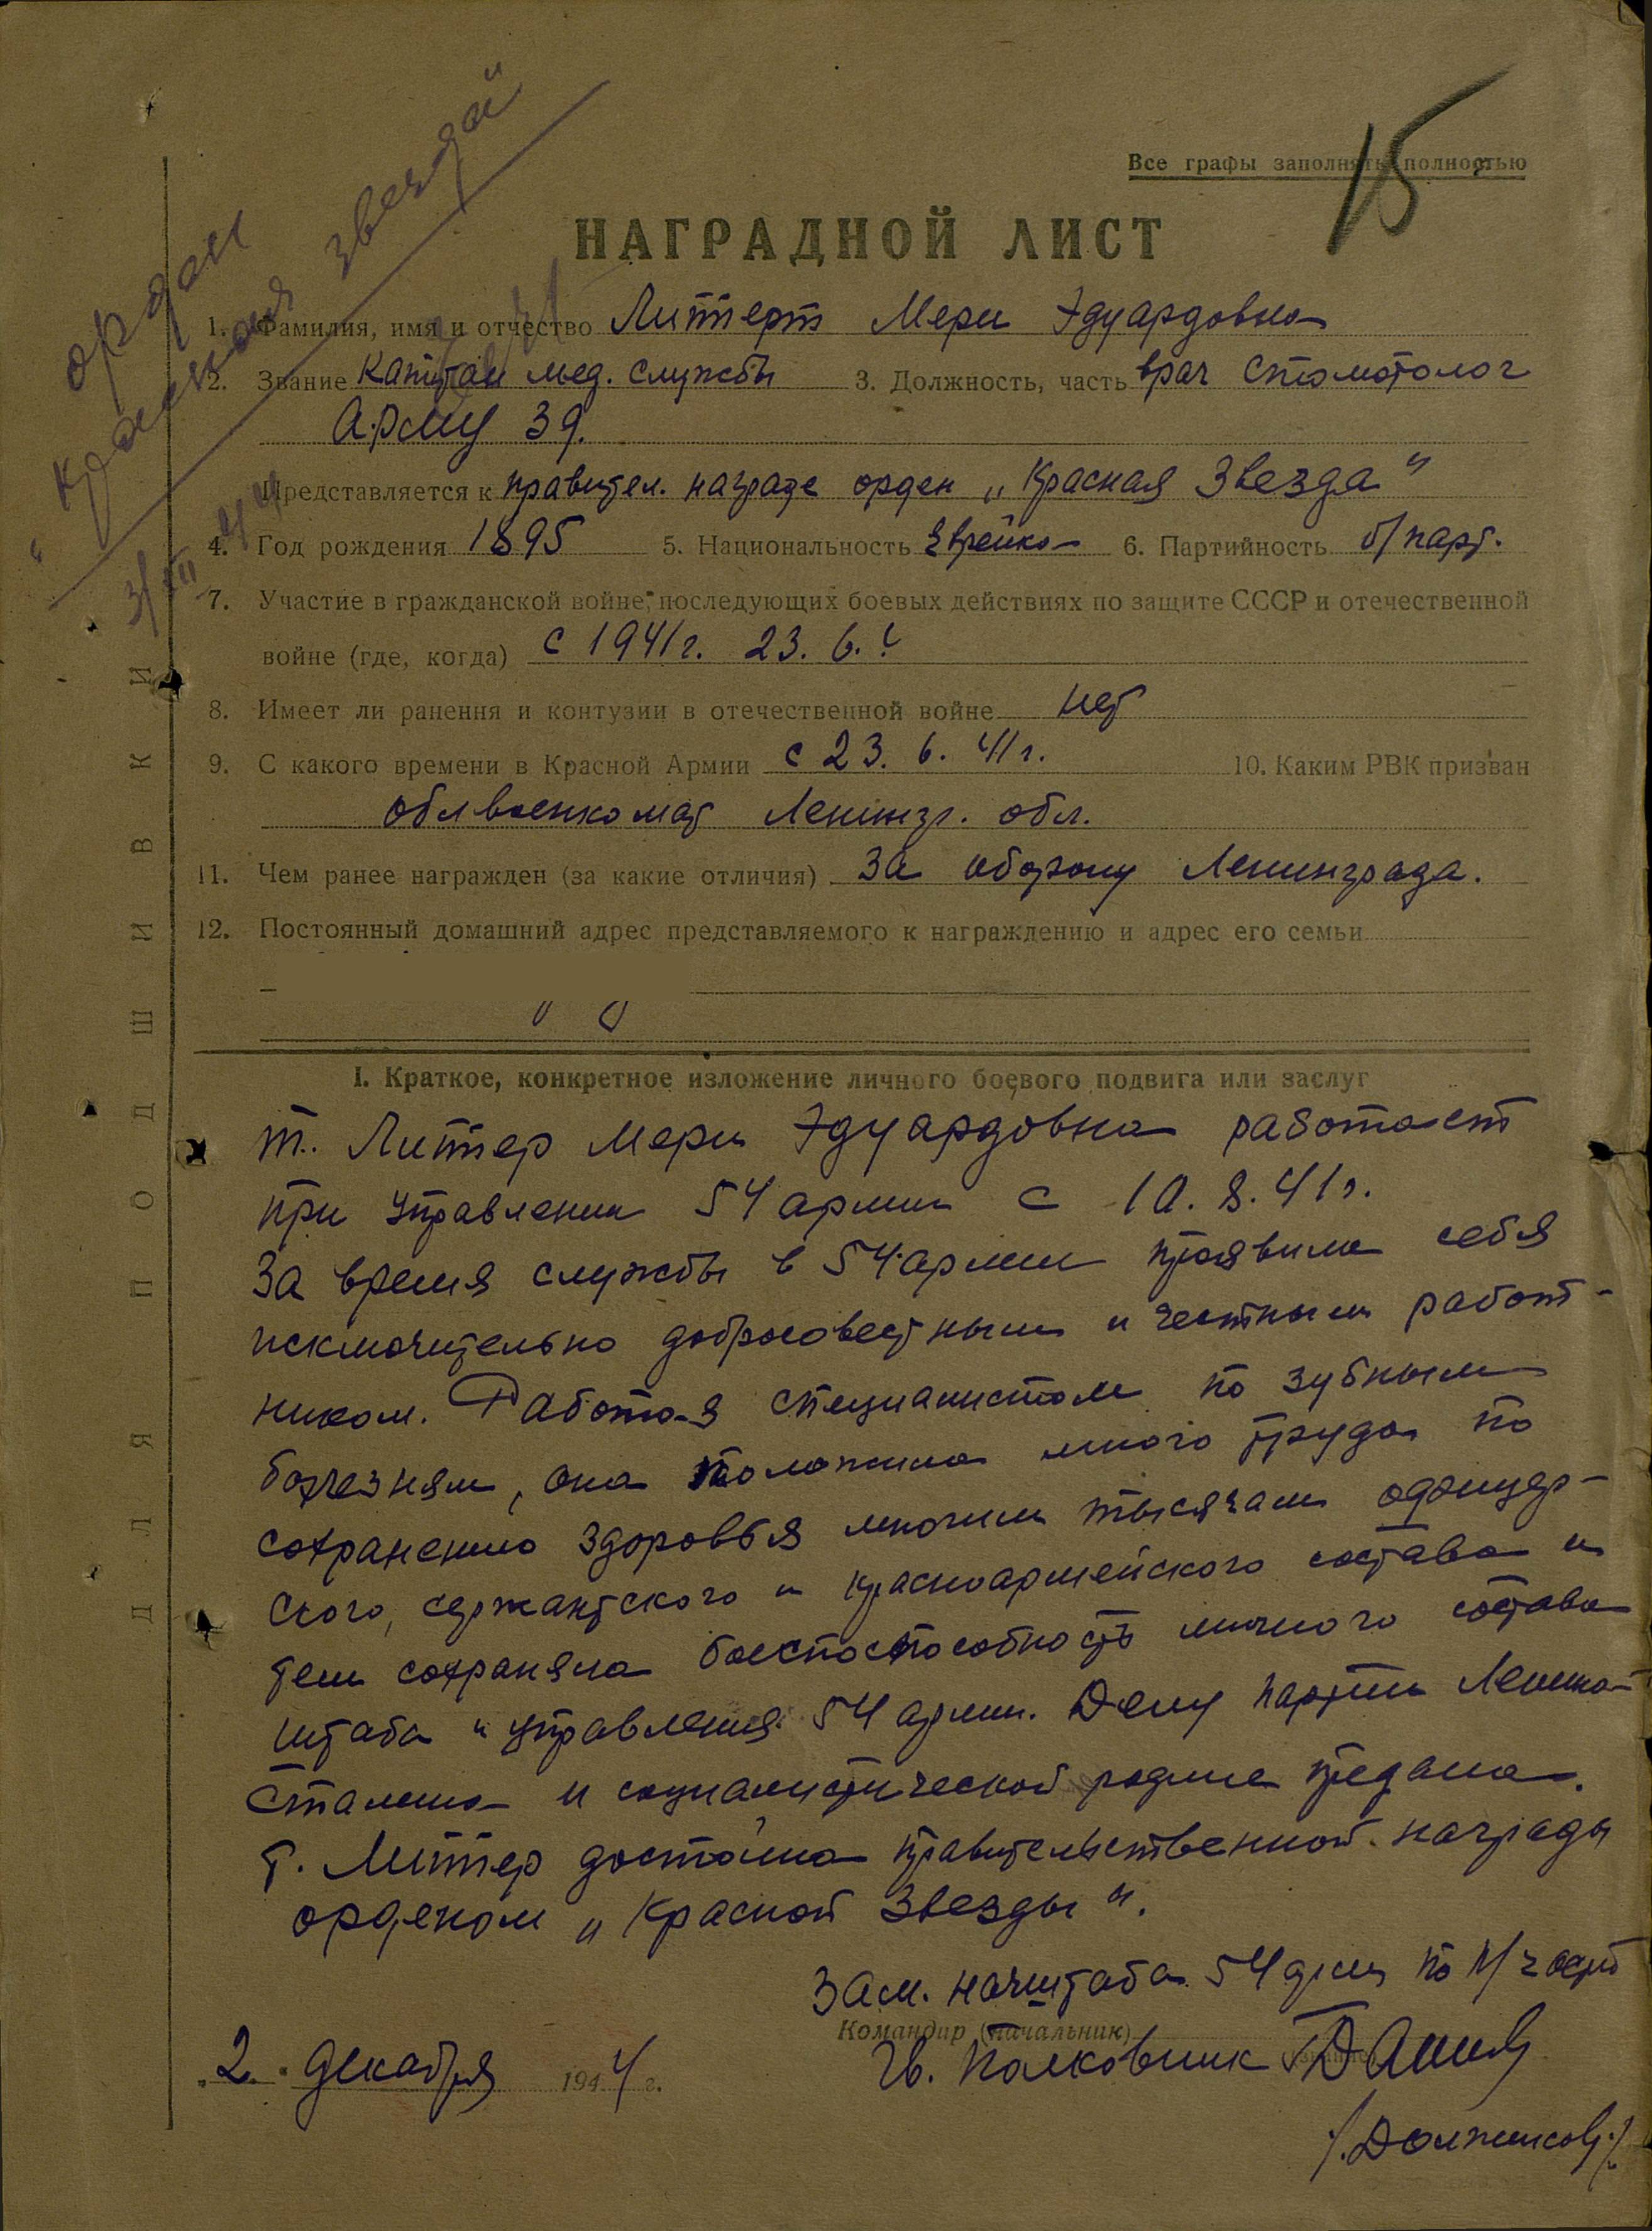 15
Все графы заполнять полностью
орден
„Красная звезда“
НАГРАДНОЙ ЛИСТ
1. Фамилия, имя и отчество Литтерт Мери Эдуардовна
2. Звание Капитан мед. службы 3. Должность, часть врач стоматолог
Представляется к правител. награде орден „Красная Звезда“
4. Год рождения 1895 5. Национальность Еврейка 6. Партийность б/парт.
7. Участие в гражданской войне, последующих боевых действиях по защите СССР и отечественной
войне (где, когда) с 1941 г. 23. 6.
8. Имеет ли ранения и контузии в отечественной войне нет
9. С какого времени в Красной Армии с 23. 6. 41 г. 10. Каким РВК призван
Облвоенкомат Ленингр. обл.
11. Чем ранее награжден (за какие отличия) За оборону Ленинграда.
12. Постоянный домашний адрес представляемого к награждению и адрес его семьи
ДЛЯ ПОДШИВКИ
I. Краткое, конкретное изложение личного боевого подвига или заслуг
т. Литтер Мери Эдуардовна работает
при управлении 54 армии с 10. 8. 41 г.
За время службы в 54 армии проявила себя
исключительно добросовестным и честным работ-
ником. Работая специалистом по зубным
болезням, она положила много труда по
сохранению здоровья многим тысячам офицер-
ского, сержантского и красноармейского состава и
тем сохраняла боеспособность личного состава
штаба и управления 54 армии. Делу партии Ленина-
Сталина и социалистической родине предана.
т. Литтер достойна правительственной награды
орденом „Красной Звезды“.
Зам. начштаба 54 арм по п/части
Командир (начальник)
Гв. Полковник
/Должиков/
„2“ декабря 1944 г.